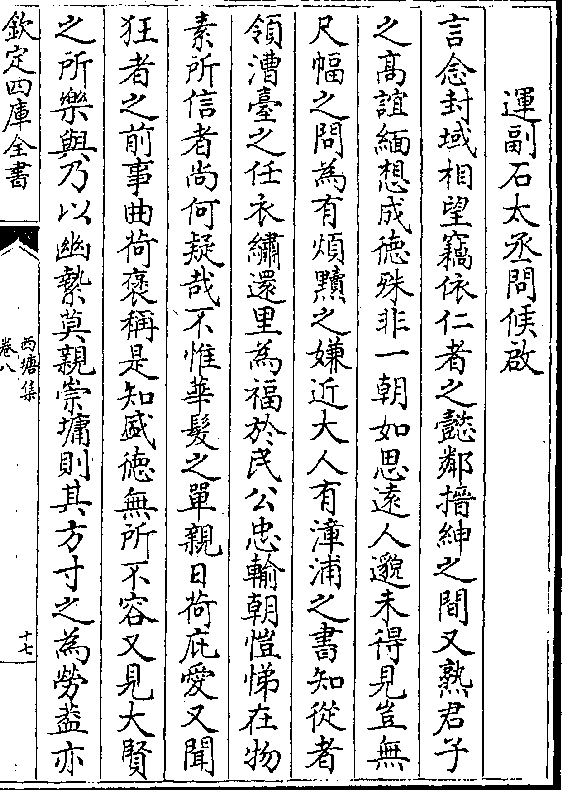 運副石太丞問候啟
言念封域相望竊依仁者之懿鄰搢紳之間又熟君子
之高誼緬想成德殊非一朝如思遠人邈未得見豈無
尺幅之問為有煩黷之嫌近大人有漳浦之書知從者
領漕臺之任衣繡還里為福於民公忠輸朝愷悌在物
素所信者尚何疑哉不惟華髮之單親日荷庇愛又聞
狂者之前事曲荷褒稱是知盛德無所不容又見大賢
之所樂與乃以幽縶莫親崇墉則其方寸之為勞葢亦
欽定四庫全書
西塘集
卷八
十七